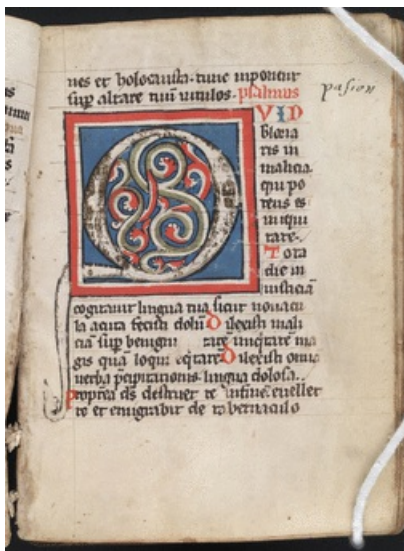 nes et holocausta. tunc inponent
sup altare tuū uitulos. psalmus
pasion
QUID
gloria
ris in
malicia.
qui po
tens es
in iqui
tate.
Tota
die in
iusticiā
cogitauit lingua tua sicut nouacu
la acuta fecisti dolū Dilexisti mali
ciā sup benigni tate iniqitatē ma
gis quā loqui eqitatē Dilexisti omnia
uerba pcipitationis lingua dolosa.
Proptea ds destruet te in finē euellet
te et emigrabit de tabernaculo